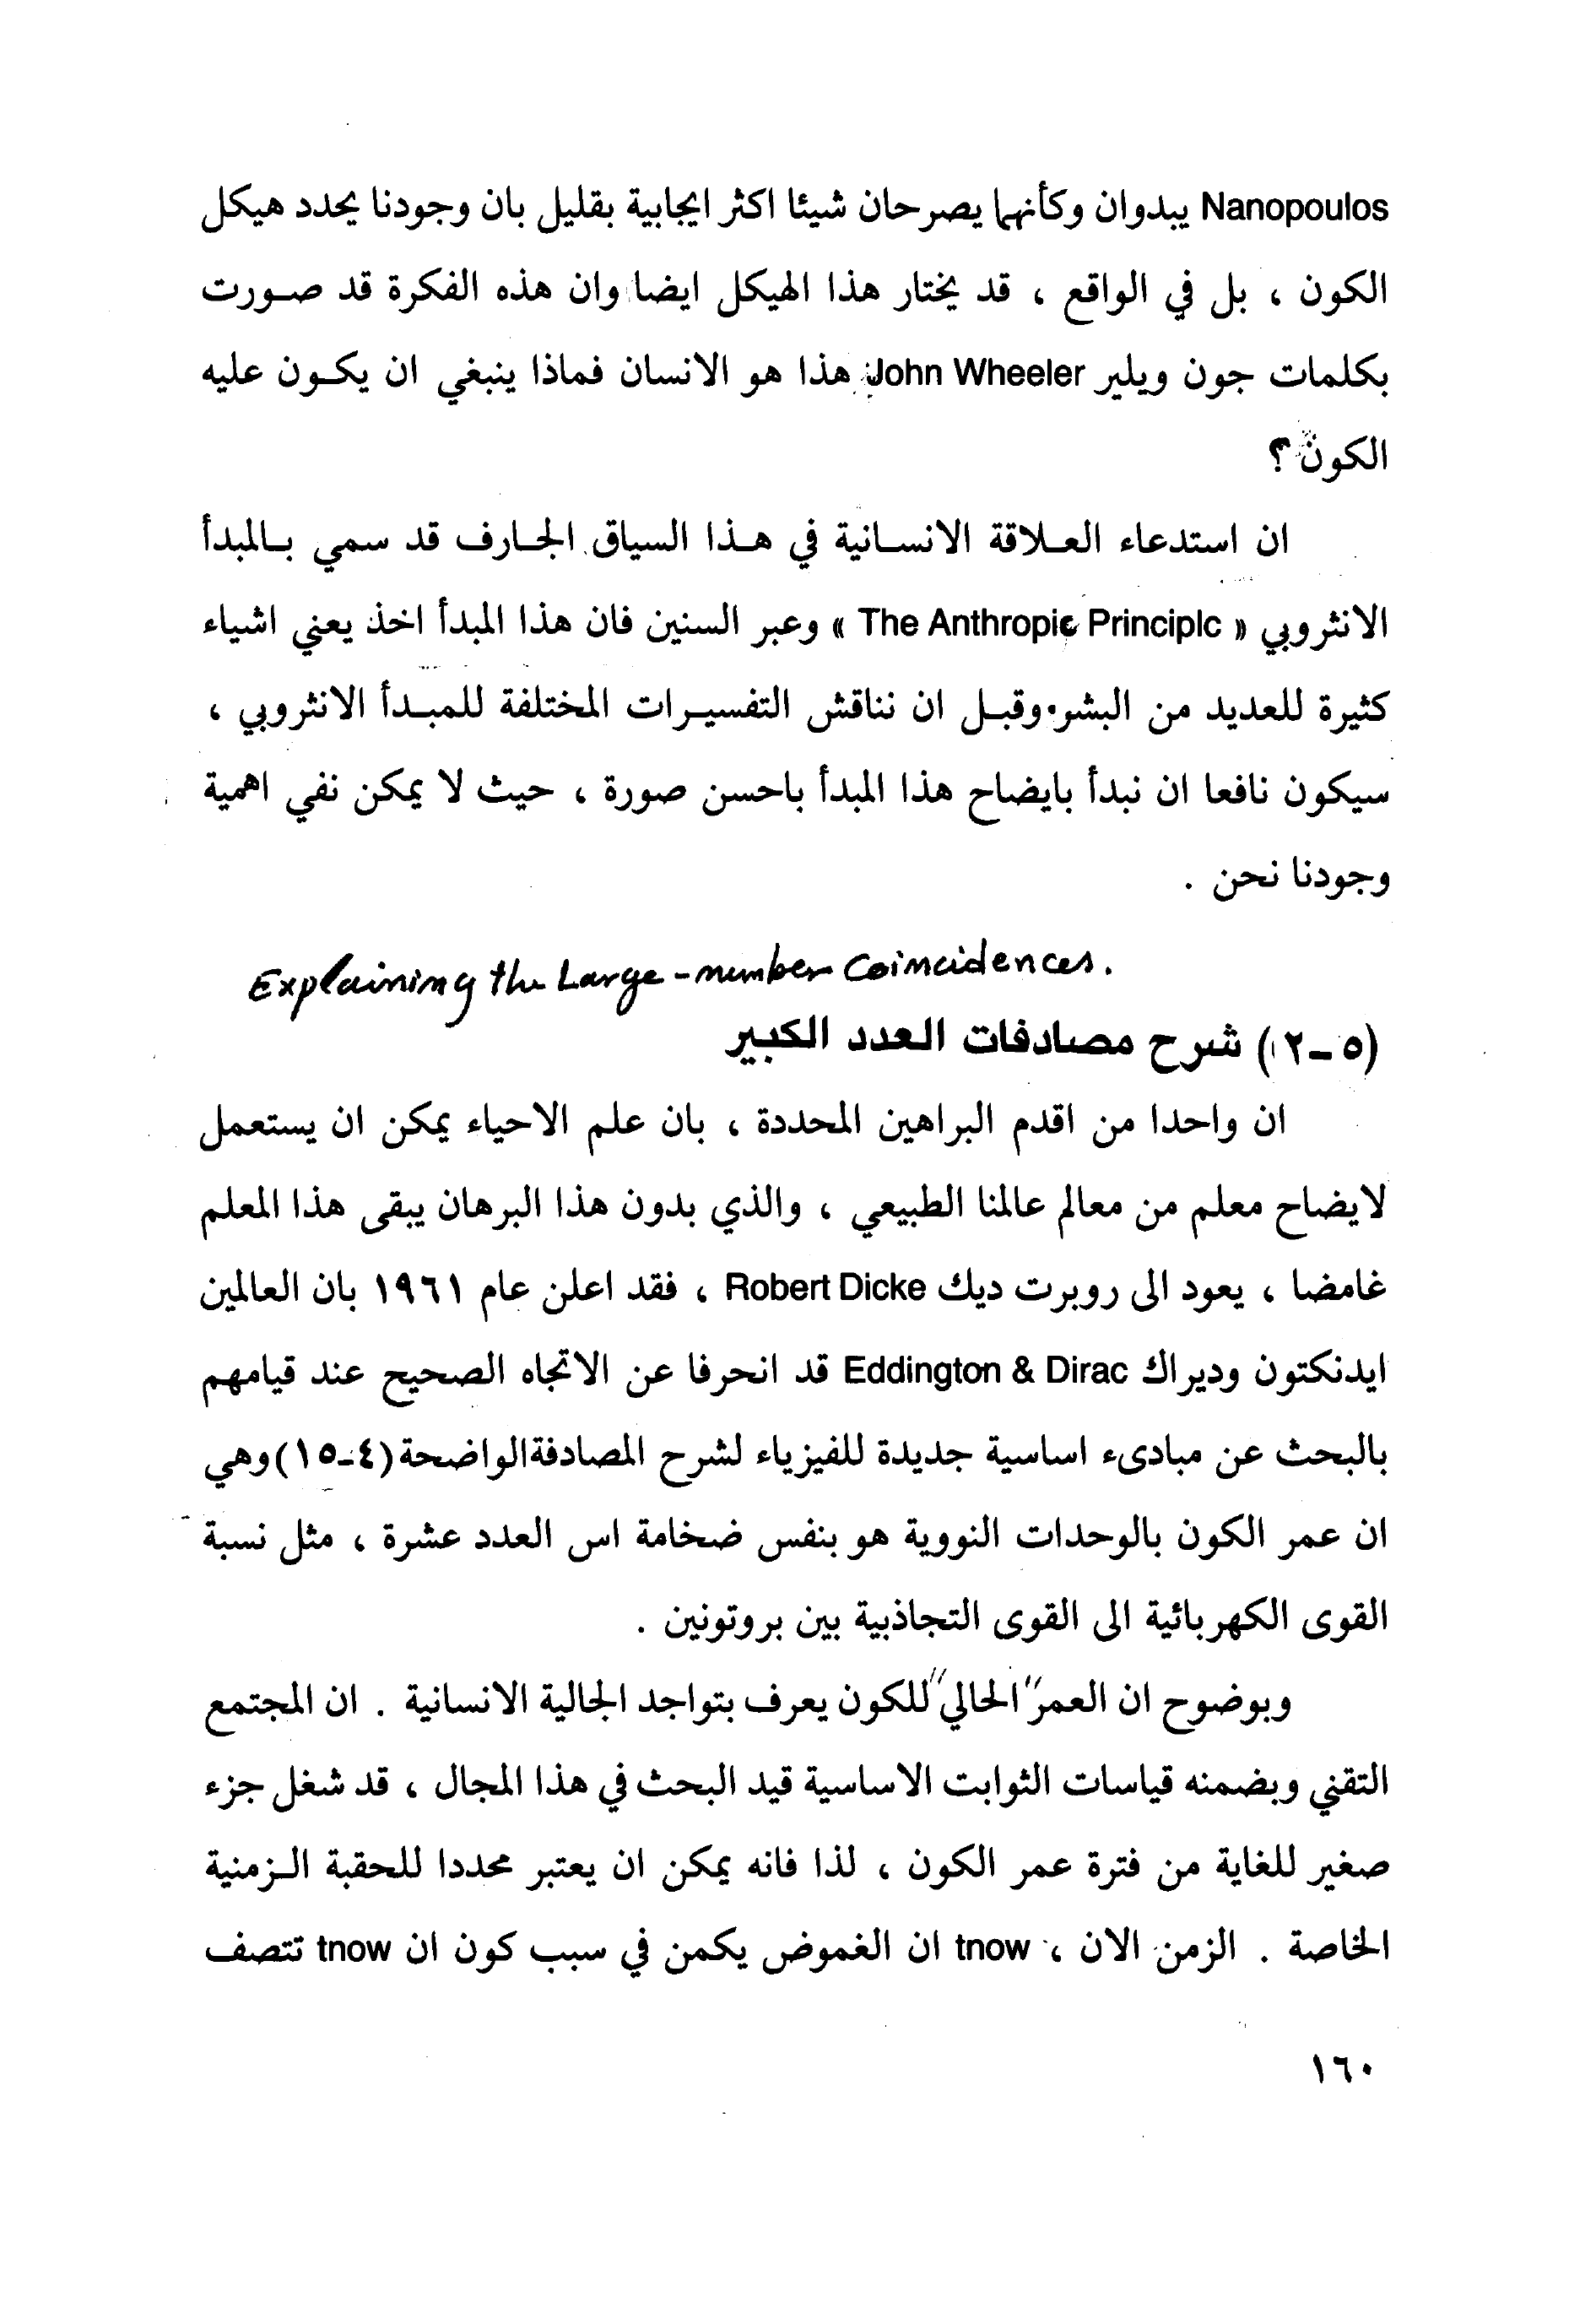 Nanopoulos يبدوان وكأنهما يصرحان شيئا اكثر ايجابية بقليل بان وجودنا يحدد هيكل
الكون ، بل في الواقع ، قد يختار هذا الهيكل ايضا وان هذه الفكرة قد صورت
بكلمات جون ويلير John Wheeler: هذا هو الانسان فماذا ينبغي ان يكون عليه
الكون ؟
ان استدعاء العلاقة الانسانية في هذا السياق الجارف قد سمي بالمبدأ
الانثروبي « The Anthropic Principlc » وعبر السنين فان هذا المبدأ اخذ يعني اشياء
كثيرة للعديد من البشر. وقبل ان نناقش التفسيرات المختلفة للمبدأ الانثروبي ،
سيكون نافعا ان نبدأ بايضاح هذا المبدأ باحسن صورة ، حيث لا يمكن نفي اهمية
وجودنا نحن .
Explaining the Large-number Coincidences.
(٥-٢) شرح مصادفات العدد الكبير
ان واحدا من اقدم البراهين المحددة ، بان علم الاحياء يمكن ان يستعمل
لايضاح معلم من معالم عالمنا الطبيعي ، والذي بدون هذا البرهان يبقى هذا المعلم
غامضا ، يعود الى روبرت ديك Robert Dicke ، فقد اعلن عام ١٩٦١ بان العالمين
ايدنكتون وديراك Eddington & Dirac قد انحرفا عن الاتجاه الصحيح عند قيامهم
بالبحث عن مبادىء اساسية جديدة للفيزياء لشرح المصادفة الواضحة (٤-١٥) وهي
ان عمر الكون بالوحدات النووية هو بنفس ضخامة اس العدد عشرة ، مثل نسبة
القوى الكهربائية الى القوى التجاذبية بين بروتونين .
وبوضوح ان العمر "الحالي" للكون يعرف بتواجد الجالية الانسانية . ان المجتمع
التقني وبضمنه قياسات الثوابت الاساسية قيد البحث في هذا المجال ، قد شغل جزء
صغير للغاية من فترة عمر الكون ، لذا فانه يمكن ان يعتبر محددا للحقبة الزمنية
الخاصة . الزمن الان ، tnow ان الغموض يكمن في سبب كون ان tnow تتصف
١٦٠